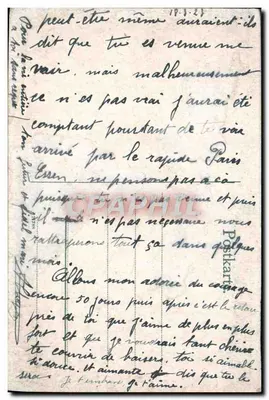 18-3-25
peut-être même auraient-ils
dit que tu es venue me
voir. mais malheureusement
ce n'es pas vrai j'aurai été
comptant pourtant de te voir
arrivé par le rapide Paris
Essen, ne pensons pas a ça
puisque et puis
n'es pas nécessaire nous
rattraperons tout ça dans quelques
mois.
Allons mon adorée du courage
encore 50 jours puis après c'est le
près de toi que j'aime de plus en plus
fort et que je voudrais tant
te couvrir de baisers. toi si aimable
si douce et aimante dis que tu le
seras je t'embrasse je t'aime.
Pour la vie entière ton futur et fidèle mari
CPAPHIL
Postkarte